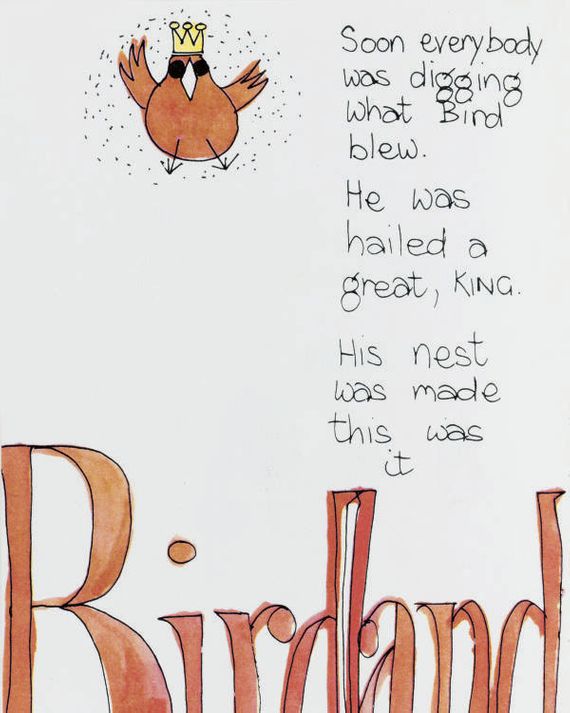 Soon everybody
was digging
what Bird
blew.
He was
hailed a
great, KING.
His nest
was made
this was
it
Birdland